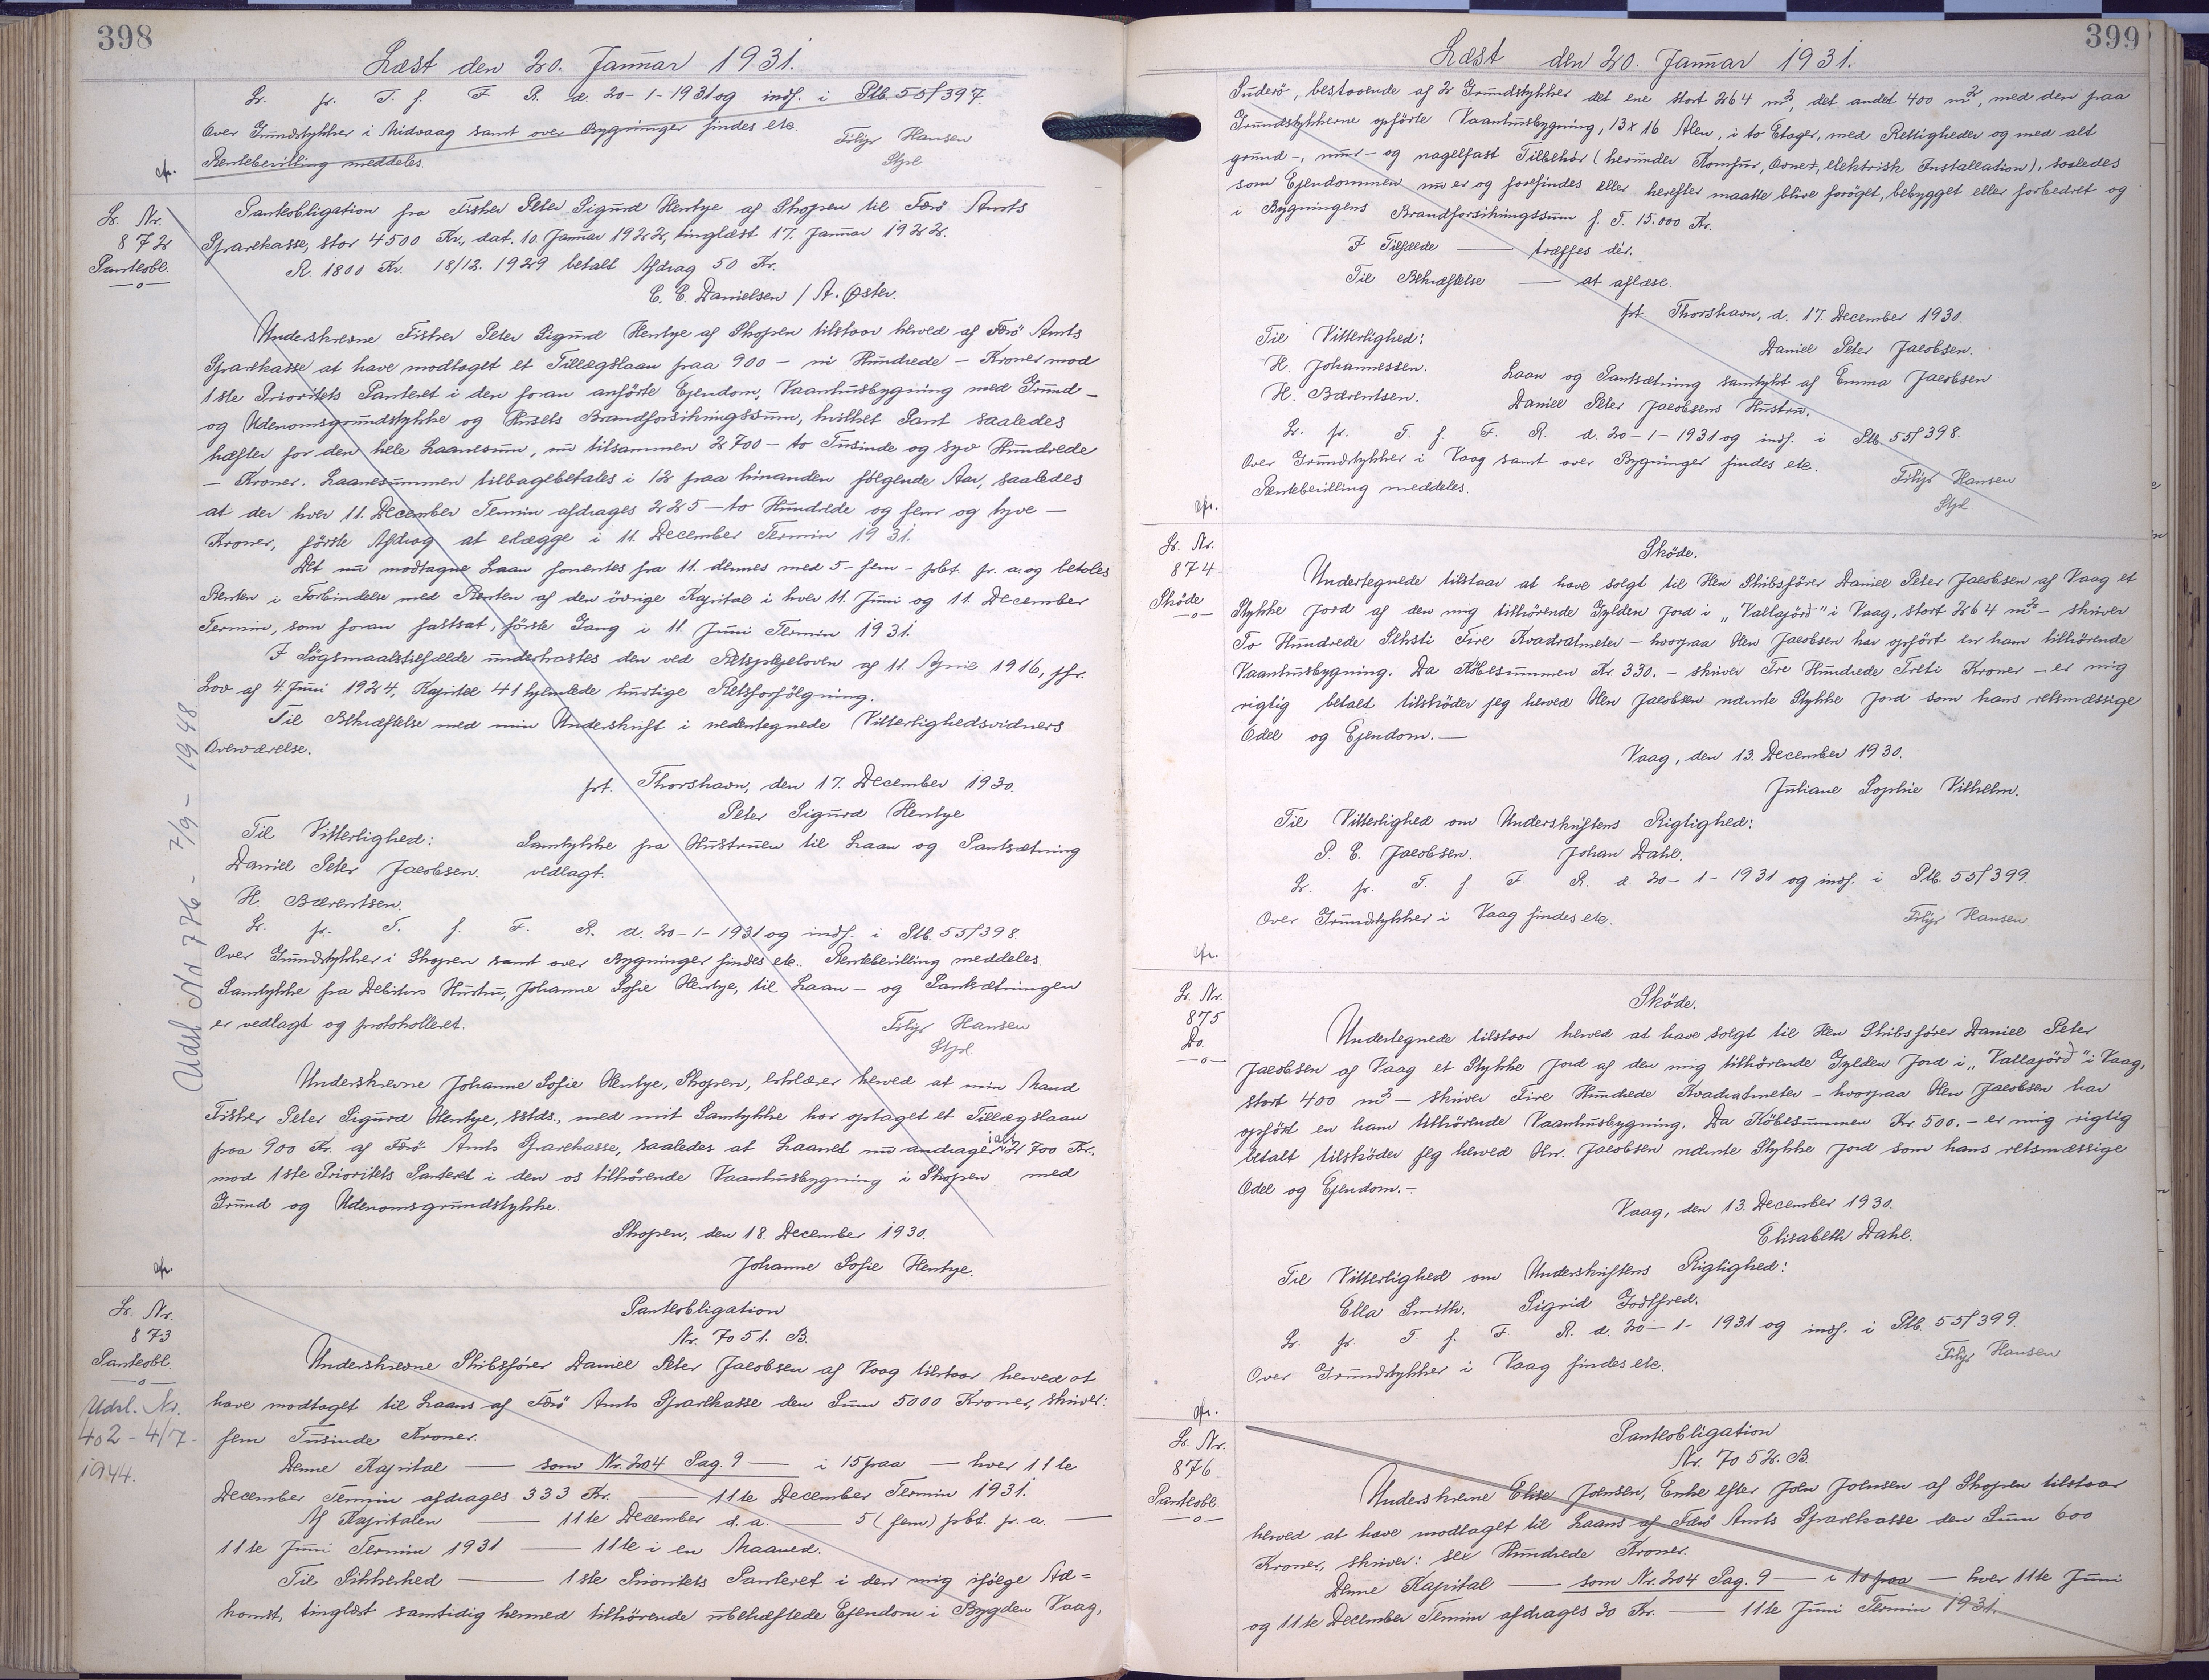 398
Læst den 20. Januar 1931.
Lr. fr. T. f. F. R. d. 20-1-1931 og indf. i Ptb. 55/397.
Over Grundstykker i Midvaag samt over Bygninger findes etc.
Filip Hansen
Rentebevilling meddeles.
Stpl.
Lr. Nr.
872
Panteobl.
Panteobligation fra Fisker Peter Sigurd Hentze af Skopen til Færø Amts
Sparekasse, stor 4500 Kr., dat. 10. Januar 1922, tinglæst 17. Januar 1922.
R. 1800 Kr. 18/12. 1929 betalt Afdrag 50 Kr.
C. E. Danielsen / A. Øster.
Underskrevne Fisker Peter Sigurd Hentze af Skopen tilstaar herved af Færø Amts
Sparekasse at have modtaget et Tillægslaan paa 900 - ni Hundrede - Kroner mod
1ste Prioritets Panteret i den foran anførte Ejendom, Vaanhusbygning med Grund-
og Udenomsgrundstykke og Husets Brandforsikringssum, hvilket Pant saaledes
hæfter for den hele Laanesum, nu tilsammen 2700 - to Tusinde og syv Hundrede
- Kroner. Laanesummen tilbagebetales i 12 paa hinanden følgende Aar, saaledes
at der hver 11. December Termin afdrages 225 - to Hundrede og fem og tyve -
Kroner, første Afdrag at erlægge i 11. December Termin 1931.
Det nu modtagne Laan forrentes fra 11. dennes med 5 - fem - pCt. pr. a. og betales
Renten i Forbindelse med Renten af den øvrige Kapital i hver 11. Juni og 11. December
Termin, som foran fastsat, første Gang i 11. Juni Termin 1931.
I Søgsmaalstilfælde underkastes den ved Retsplejeloven af 11. April 1916, jfr.
Lov af 4. Juni 1924, Kapitel 41 hjemlede hurtige Retsforfølgning.
Til Bekræftelse med min Underskrift i nedentegnede Vitterlighedsvidners
Overværelse.
pt. Thorshavn, den 17. December 1930.
Peter Sigurd Hentze
Til Vitterlighed: Samtykke fra Hustruen til Laan og Pantsætning
Daniel Peter Jacobsen. vedlagt.
H. Bærentsen.
Lr. fr. T. f. F. R. d. 20-1-1931 og indf. i Ptb. 55/398.
Over Grundstykker i Skopen samt over Bygninger findes etc. Rentebevilling meddeles.
Samtykke fra Debitors Hustru, Johanne Sofie Hentze, til Laan- og Pantsætningen
er vedlagt og protokolleret.
Filip Hansen
Stpl.
Udsl Nr 776 - 7/9 - 1948
Underskrevne Johanne Sofie Hentze, Skopen, erklærer herved at min Mand
Fisker Peter Sigurd Hentze, sstds., med mit Samtykke har optaget et Tillægslaan
paa 900 Kr. af Færø Amts Sparekasse, saaledes at Laanet nu andrager ialt 2700 Kr.
mod 1ste Prioritets Panteret i den os tilhørende Vaanhusbygning i Skopen med
Grund og Udenomsgrundstykke.
Skopen, den 18. December 1930.
Johanne Sofie Hentze.
Lr. Nr.
873
Panteobl.
Udsl. Nr.
402 - 4/7 -
1944.
Panteobligation
Nr. 7051. B.
Underskrevne Skibsfører Daniel Peter Jacobsen af Vaag tilstaar herved at
have modtaget til Laans af Færø Amts Sparekasse den Sum 5000 Kroner, skriver:
fem Tusinde Kroner.
Denne Kapital — som Nr. 204 Pag. 9 — i 15 paa — hver 11te
December Termin afdrages 333 Kr. — 11te December Termin 1931.
Af Kapitalen — 11te December d. a. — 5 (fem) pCt. pr. a. —
11te Juni Termin 1931 — 11te i en Maaned.
Til Sikkerhed — 1ste Prioritets Panteret i den mig ifølge Ad=
komst, tinglæst samtidig hermed tilhørende ubehæftede Ejendom i Bygden Vaag,
399
Læst den 20. Januar 1931.
Suderø, bestaaende af 2 Grundstykker det ene stort 264 m², det andet 400 m², med den paa
Grundstykkerne opførte Vaanhusbygning, 13 x 16 Alen, i to Etager, med Rettigheder og med alt
grund-, mur- og nagelfast Tilbehør (herunder Komfur, Ovner, elektrisk Installation), saaledes
som Ejendommen nu er og forefindes eller herefter maatte blive forøget, bebygget eller forbedret og
i Bygningens Brandforsikringssum f. T. 15.000 Kr.
I Tilfælde — træffes dér.
Til Bekræftelse — at aflæse.
pt. Thorshavn, d. 17. December 1930.
Til Vitterlighed:
Daniel Peter Jacobsen.
H. Johannessen.
Laan og Pantsætning samtykt af Emma Jacobsen
H. Bærentsen.
Daniel Peter Jacobsens Hustru.
Lr. fr. T. f. F. R. d. 20-1-1931 og indf. i Ptb. 55/398.
Over Grundstykker i Vaag samt over Bygninger findes etc.
Filip Hansen
Rentebevilling meddeles.
Stpl.
Lr. Nr.
874
Skøde
Skøde.
Undertegnede tilstaar at have solgt til Hr. Skibsfører Daniel Peter Jacobsen af Vaag et
Stykke Jord af den mig tilhørende Gylden Jord i „Vallajörð" i Vaag, stort 264 m² - skriver
To Hundrede Seksti Fire Kvadratmeter - hvorpaa Hr. Jacobsen har opført en ham tilhørende
Vaanhusbygning. Da Købesummen Kr. 330.- skriver Tre Hundrede Treti Kroner - er mig
rigtig betalt tilskøder jeg herved Hr. Jacobsen nævnte Stykke Jord som hans retsmæssige
Odel og Ejendom.—
Vaag, den 13. December 1930.
Juliane Sophie Vilhelm.
Til Vitterlighed om Underskriftens Rigtighed:
P. E. Jacobsen. Johan Dahl.
Lr. fr. T. f. F. R. d. 20-1-1931 og indf. i Ptb. 55/399.
Over Grundstykker i Vaag findes etc.
Filip Hansen
Lr. Nr.
875
Do.
Skøde.
Undertegnede tilstaar herved at have solgt til Hr. Skibsfører Daniel Peter
Jacobsen af Vaag et Stykke Jord af den mig tilhørende Gylden Jord i „Vallajörð" i Vaag,
stort 400 m² - skriver Fire Hundrede Kvadratmeter - hvorpaa Hr. Jacobsen har
opført en ham tilhørende Vaanhusbygning. Da Købesummen Kr. 500.- er mig rigtig
betalt tilskøder jeg herved Hr. Jacobsen nævnte Stykke Jord som hans retsmæssige
Odel og Ejendom.-
Vaag, den 13. December 1930.
Elisabeth Dahl.
Til Vitterlighed om Underskriftens Rigtighed:
Ella Smith. Sigrid Godtfred.
Lr. fr. T. f. F. R. d. 20-1-1931 og indf. i Ptb. 55/399.
Over Grundstykker i Vaag findes etc.
Filip Hansen
Lr. Nr.
876
Panteobl.
Panteobligation
Nr. 7052. B.
Underskrevne Elise Joensen, Enke efter Joen Joensen af Skopen tilstaar
herved at have modtaget til Laans af Færø Amts Sparekasse den Sum 600
Kroner, skriver: sex Hundrede Kroner.
Denne Kapital — som Nr. 204 Pag. 9 — i 10 paa — hver 11te Juni
og 11te December Termin afdrages 30 Kr. — 11te Juni Termin 1931.